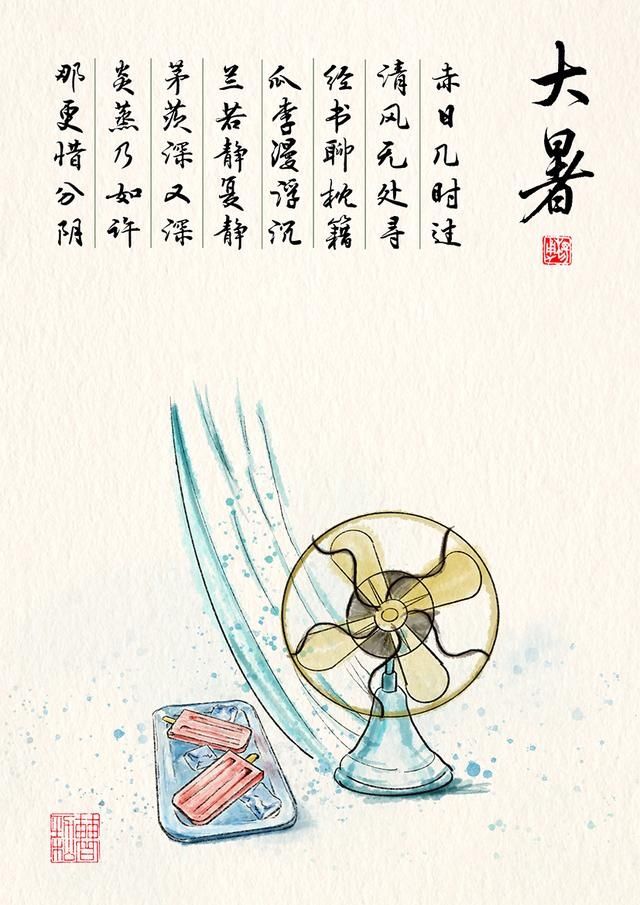 大暑
赤日几时过
清风无处寻
经书聊枕籍
瓜李漫浮沉
兰若静复静
茅茨深又深
炎蒸乃如许
那更惜分阴